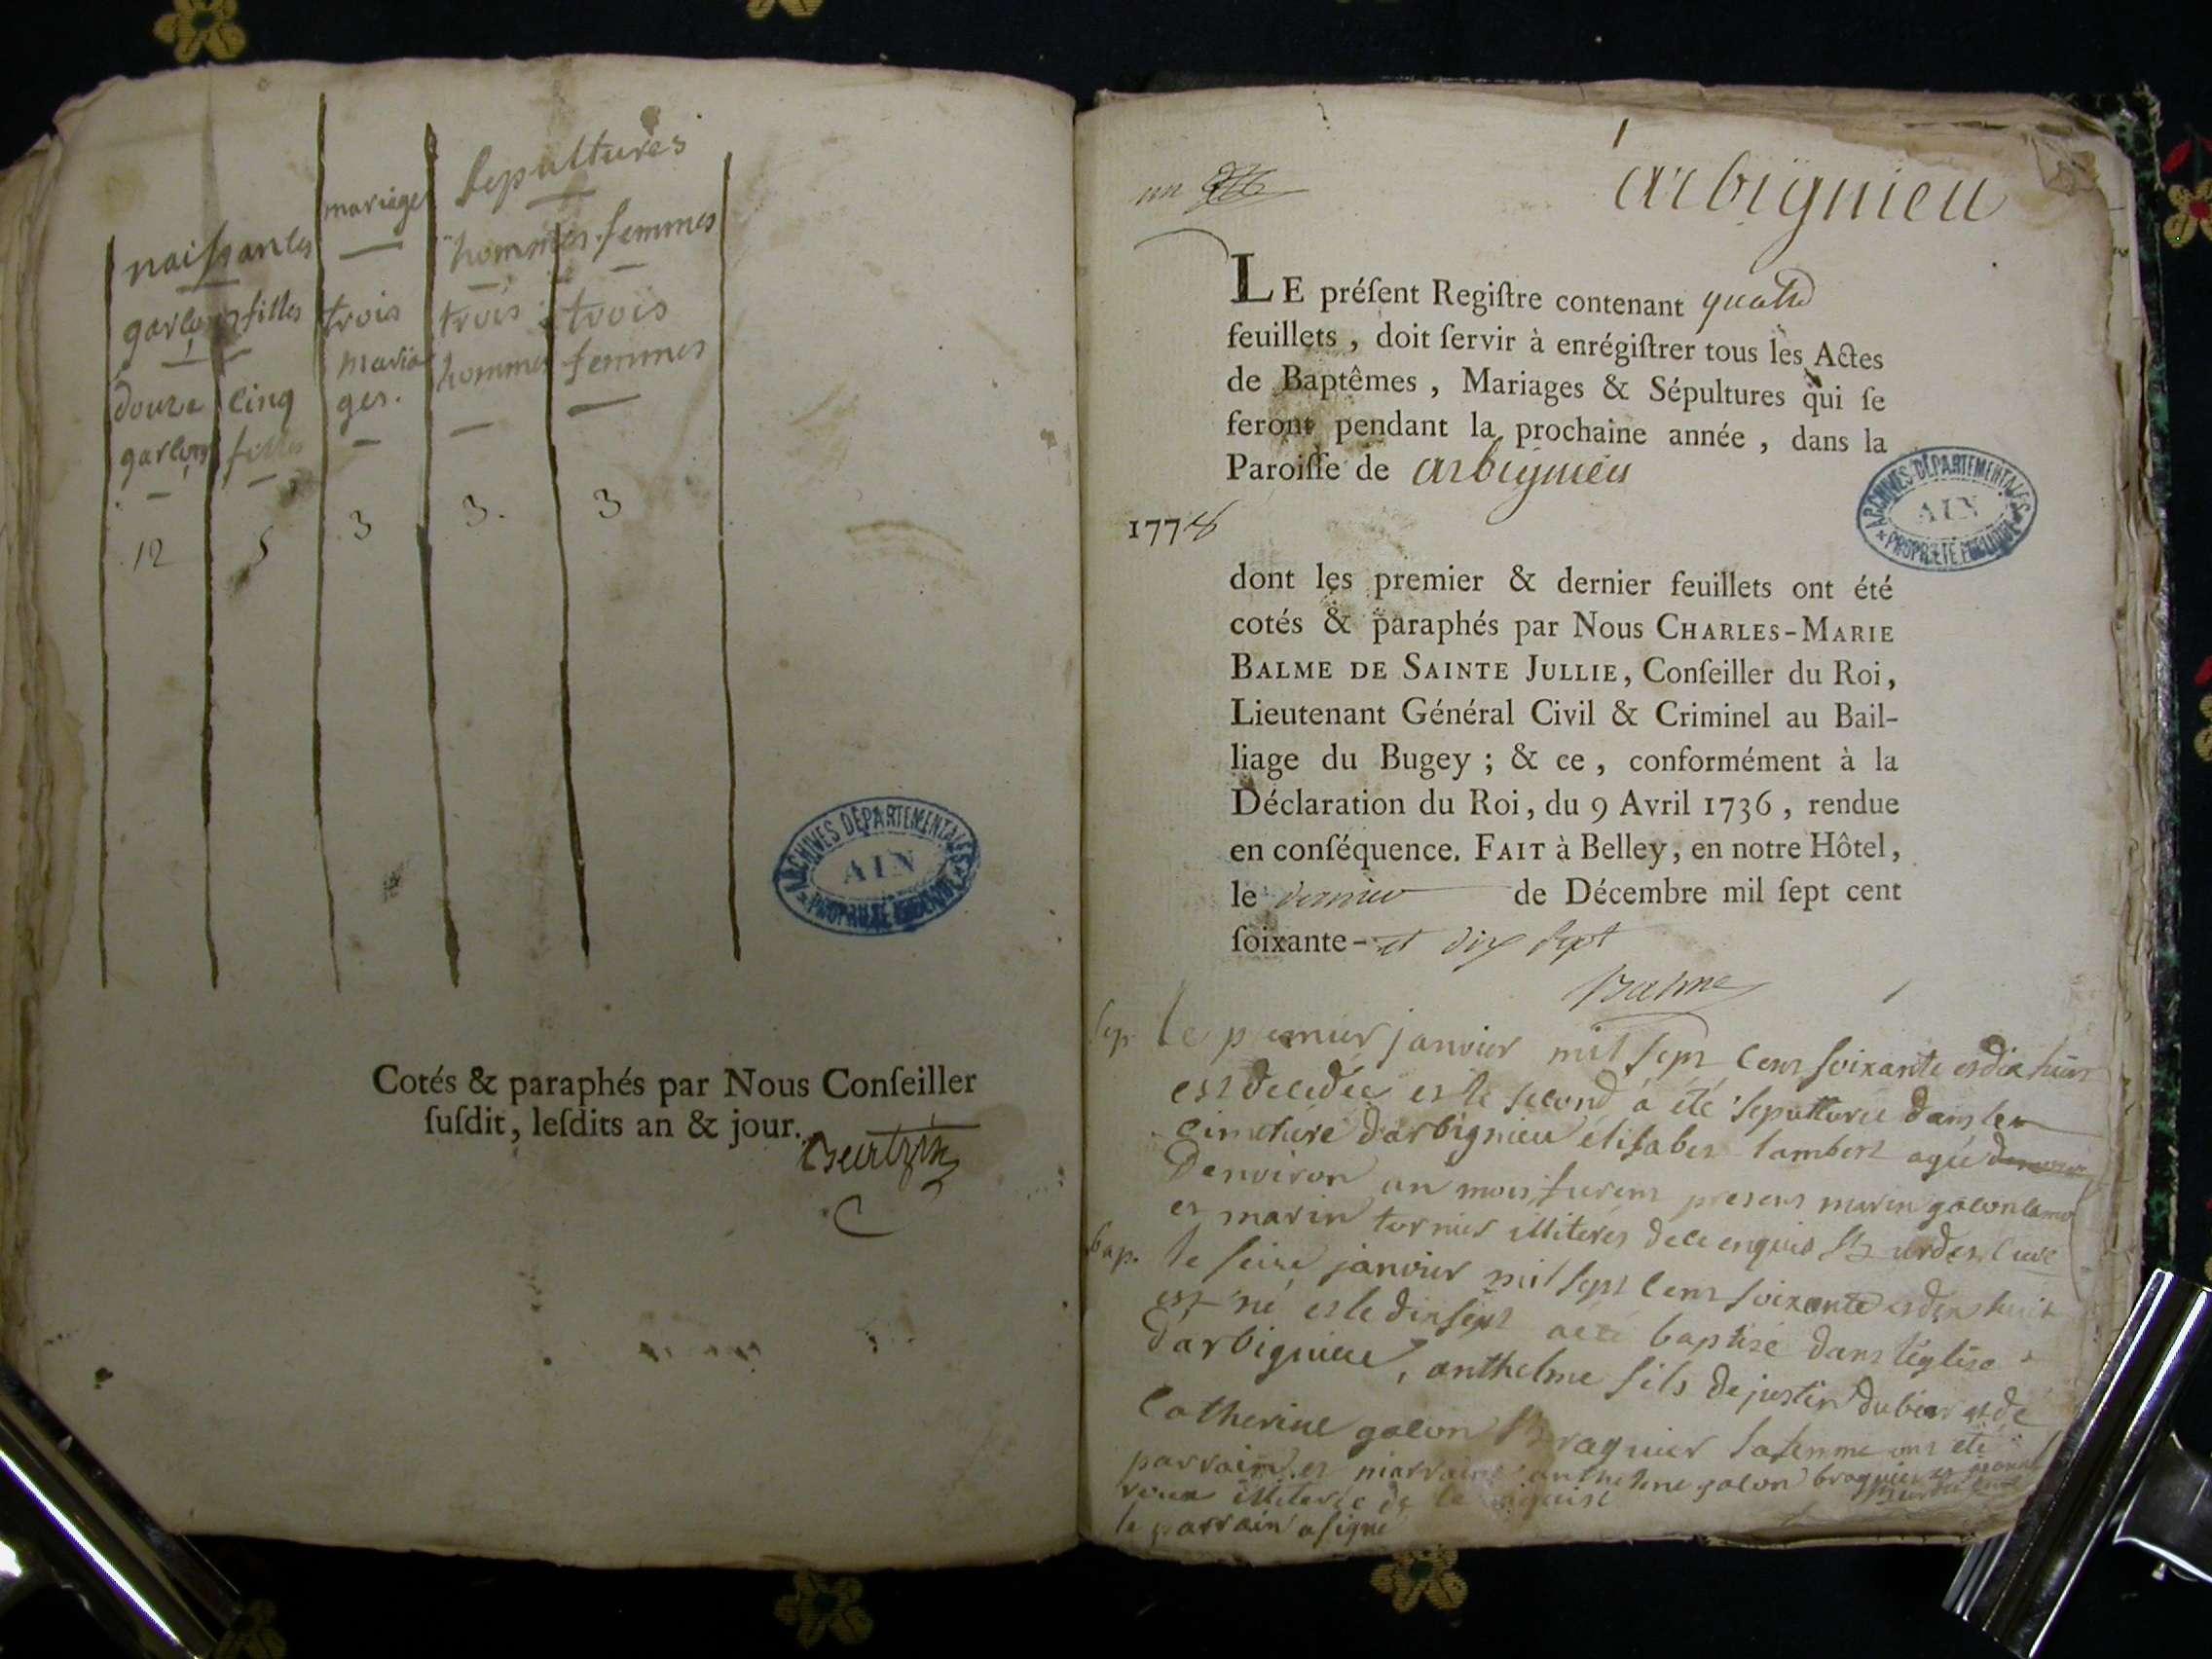 naissances
mariages
sepultures
hommes femmes
garçons filles
trois
trois
trois
maria
hommes
femmes
douze
cinq
ges.
garçons
filles
12
5
3
3.
3
ARCHIVES DÉPARTEMENTALES
AIN
PROPRIÉTÉ PUBLIQUE
Cotés & paraphés par Nous Conſeiller
ſuſdit, leſdits an & jour.
un
arbignieu
LE préſent Regiſtre contenant quatre
feuillets, doit ſervir à enrégiſtrer tous les Actes
de Baptêmes, Mariages & Sépultures qui ſe
feront pendant la prochaine année, dans la
Paroiſſe de arbignieu
ARCHIVES DÉPARTEMENTALES
AIN
PROPRIÉTÉ PUBLIQUE
1778
dont les premier & dernier feuillets ont été
cotés & paraphés par Nous CHARLES-MARIE
BALME DE SAINTE JULLIE, Conſeiller du Roi,
Lieutenant Général Civil & Criminel au Bail-
liage du Bugey ; & ce, conformément à la
Déclaration du Roi, du 9 Avril 1736, rendue
en conſéquence. FAIT à Belley, en notre Hôtel,
le dernier de Décembre mil ſept cent
ſoixante - et dix sept
Balme
sep. le premier janvier mil sept cent soixante et dix huit
est decedée et le second a été sepulturée dans le
cimetiére d'arbignieu élisabet lambert agée
d'environ un mois furent presens marin
et marin tornier illiterés de ce enquis curé
bap. le seize janvier mil sept cent soixante et dix huit
est né et le dix sept a été baptisé dans l'église
d'arbignieu, anthelme fils de justin dubier et de
catherine galon braquier sa femme ont été
parrain et marraine anthelme galon braquier et
roux illiterée de ce enquise
le parrain a signé